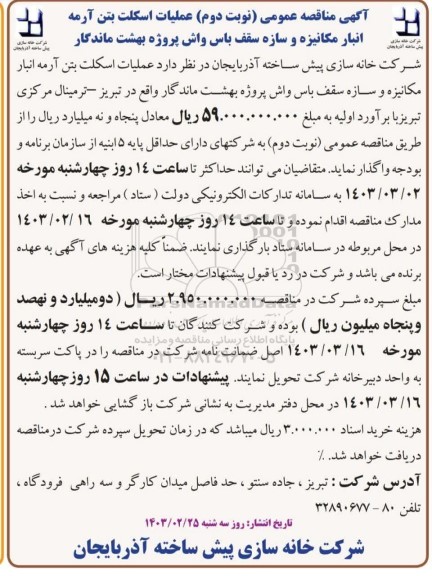 آگهی مناقصه عمومی (نوبت دوم) عملیات اسکلت بتن آرمه
انبار مکانیزه و سازه سقف باس واش پروژه بهشت ماندگار
شرکت خانه سازی
پیش ساخته آذربایجان
شرکت خانه سازی
پیش ساخته آذربایجان
شرکت خانه سازی پیش ساخته آذربایجان در نظر دارد عملیات اسکلت بتن آرمه انبار
مکانیزه و سازه سقف باس واش پروژه بهشت ماندگار واقع در تبریز –ترمینال مرکزی
تبریزبا برآورد اولیه به مبلغ ۵۹.۰۰۰.۰۰۰.۰۰۰ ریال معادل پنجاه و نه میلیارد ریال را از
طریق مناقصه عمومی (نوبت دوم) به شرکتهای دارای حداقل پایه ۵ ابنیه از سازمان برنامه و
بودجه واگذار نماید. متقاضیان می توانند حداکثر تا ساعت ۱۴ روز چهارشنبه مورخه
۱۴۰۳/۰۳/۰۲ به سامانه تدارکات الکترونیکی دولت ( ستاد ) مراجعه و نسبت به اخذ
مدارک مناقصه اقدام نموده و تا ساعت ۱۴ روز چهارشنبه مورخه ۱۴۰۳/۰۲/۱۶
در محل مربوطه در سامانه ستاد بارگذاری نمایند. ضمناً کلیه هزینه های آگهی به عهده
برنده می باشد و شرکت در رد یا قبول پیشنهادات مختار است.
مبلغ سپرده شرکت در مناقصه ۲.۹۵۰.۰۰۰.۰۰۰ ریال ( دومیلیارد و نهصد
وپنجاه میلیون ریال ) بوده و شرکت کنندگان تا ساعت ۱۴ روز چهارشنبه
مورخه ۱۴۰۳/۰۳/۱۶ اصل ضمانت نامه شرکت در مناقصه را در پاکت سربسته
به واحد دبیرخانه شرکت تحویل نمایند. پیشنهادات در ساعت ۱۵ روز چهارشنبه
۱۴۰۳/۰۳/۱۶ در محل دفتر مدیریت به نشانی شرکت باز گشایی خواهد شد .
هزینه خرید اسناد ۳.۰۰۰.۰۰۰ ریال میباشد که در زمان تحویل سپرده شرکت درمناقصه
دریافت خواهد شد. ٪
آدرس شرکت : تبریز ، جاده سنتو ، حد فاصل میدان کارگر و سه راهی فرودگاه ،
تلفن ۸۰ - ۳۲۸۹۰۶۷۷
تاریخ انتشار: روز سه شنبه ۱۴۰۳/۰۲/۲۵
شرکت خانه سازی پیش ساخته آذربایجان